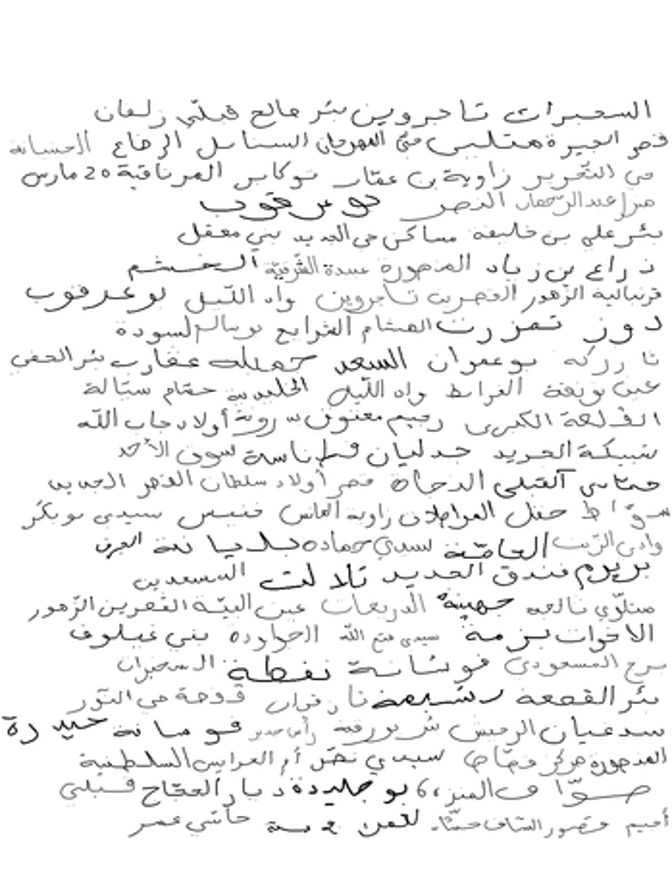 السعيرات تاجروين بئر مالح قبلّي زلفان
قصر الجيرة متلين حيّ المهرجان السنابل الرضاع الحسيانة
حي التحرير زاوية بن عمّار نوكاس المرناقية 20 مارس
منزل عبد الرحمان النصر بوعرقوب
بئر علي بن خليفة مساكن حي الجديد بني معقل
ذراع بن زياد المنصورة عميدة الشرقية الخشم
قرنبالية الزهور القصرين تاجروين واد الليل بوعرقوب
دوز تمزرت الهشام الشرايع بوسالم السودة
تازركة بوعمران السعد جميلة عقارب بئر الحفي
عين بونعجة الفراط واد الليل الحليدية حمّام سيّالة
القلعة الكبرى رجيم معتوق بدرونة أولاد جاب الله
شبيكة الجريد جدليان قرطاسة سوق الأحد
القبلي الدخان قصر أولاد سلطان القصر الجديد
سقّاط حفل المواطن زاوية العانس فنيس سيدي بوبكر
وادي الزيت العامّة سيدي حمادة بليانة
بريرم فندق الجديد تلالت السعيدين
منلّوي نالجة جهينة الذريعات عين البيّة القصرين الزهور
الاخوات بزمة سيدي فتح الله الحواودة بني غيلوف
برج المسعودي فوشانة نفطة السخيرات
بئر القصعة رشيمة تازغران قدحة حي النور
سدغيان الرميش شربورقية رأس جدير فوسانة حيدرة
المنصورة مركز قصّاص سيدي نصر أم العرايس السلطنية
صوّاف المنزه 6 بوجليدة ديار الحجّاج قبلي
أميم قصور الساف لقمن حاسي عمر